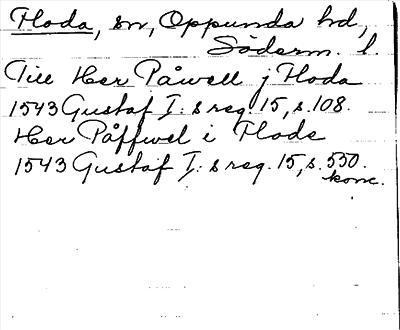 Floda, sn, Oppunda hd,
Söderm. l.
Till Her Påwell j Floda
1543 Gustaf I:s reg. 15, s. 108.
Her Påffwel i Flode
1543 Gustaf I:s reg. 15, s. 550.
konc.